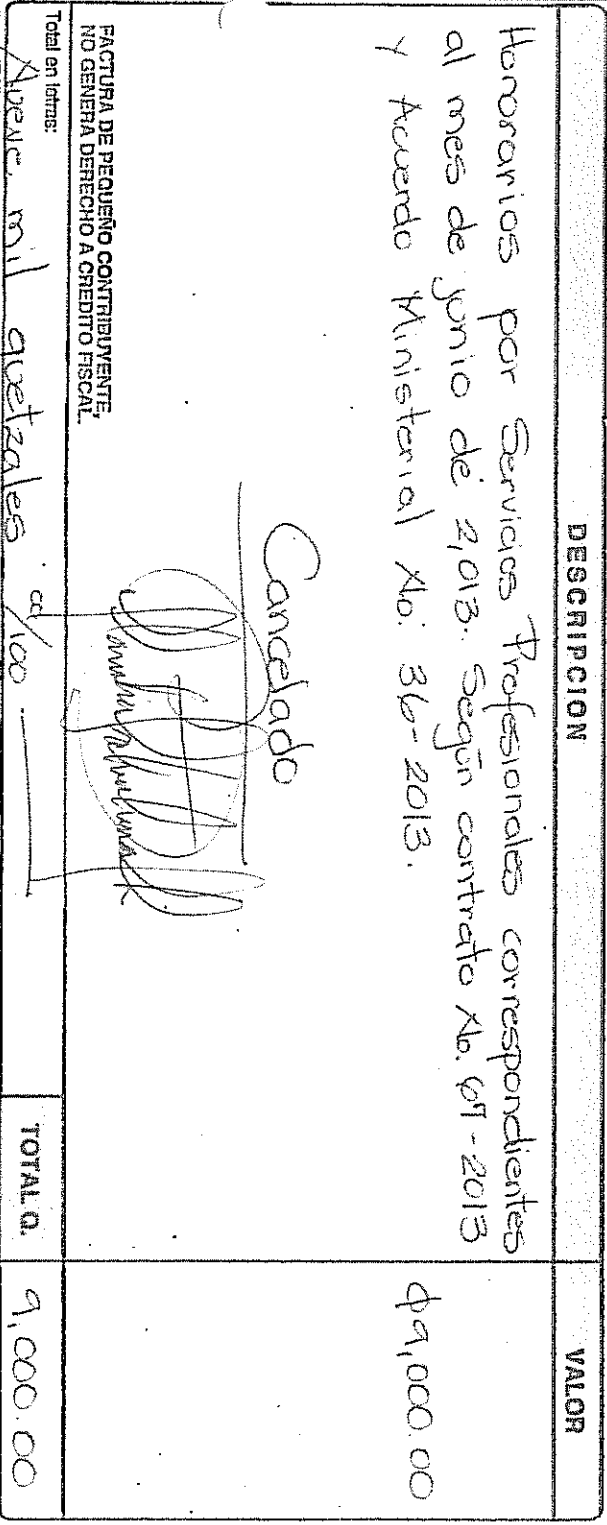 DESCRIPCION
VALOR
Honorarios por Servicios Profesionales correspondientes
al mes de junio de 2,013. Según contrato No. 67-2013
y Acuerdo Ministerial No. 36-2013.
Q9,000.00
Cancelado
FACTURA DE PEQUEÑO CONTRIBUYENTE,
NO GENERA DERECHO A CREDITO FISCAL.
Total en letras:
Nueve mil quetzales /100
TOTAL Q.
9,000.00